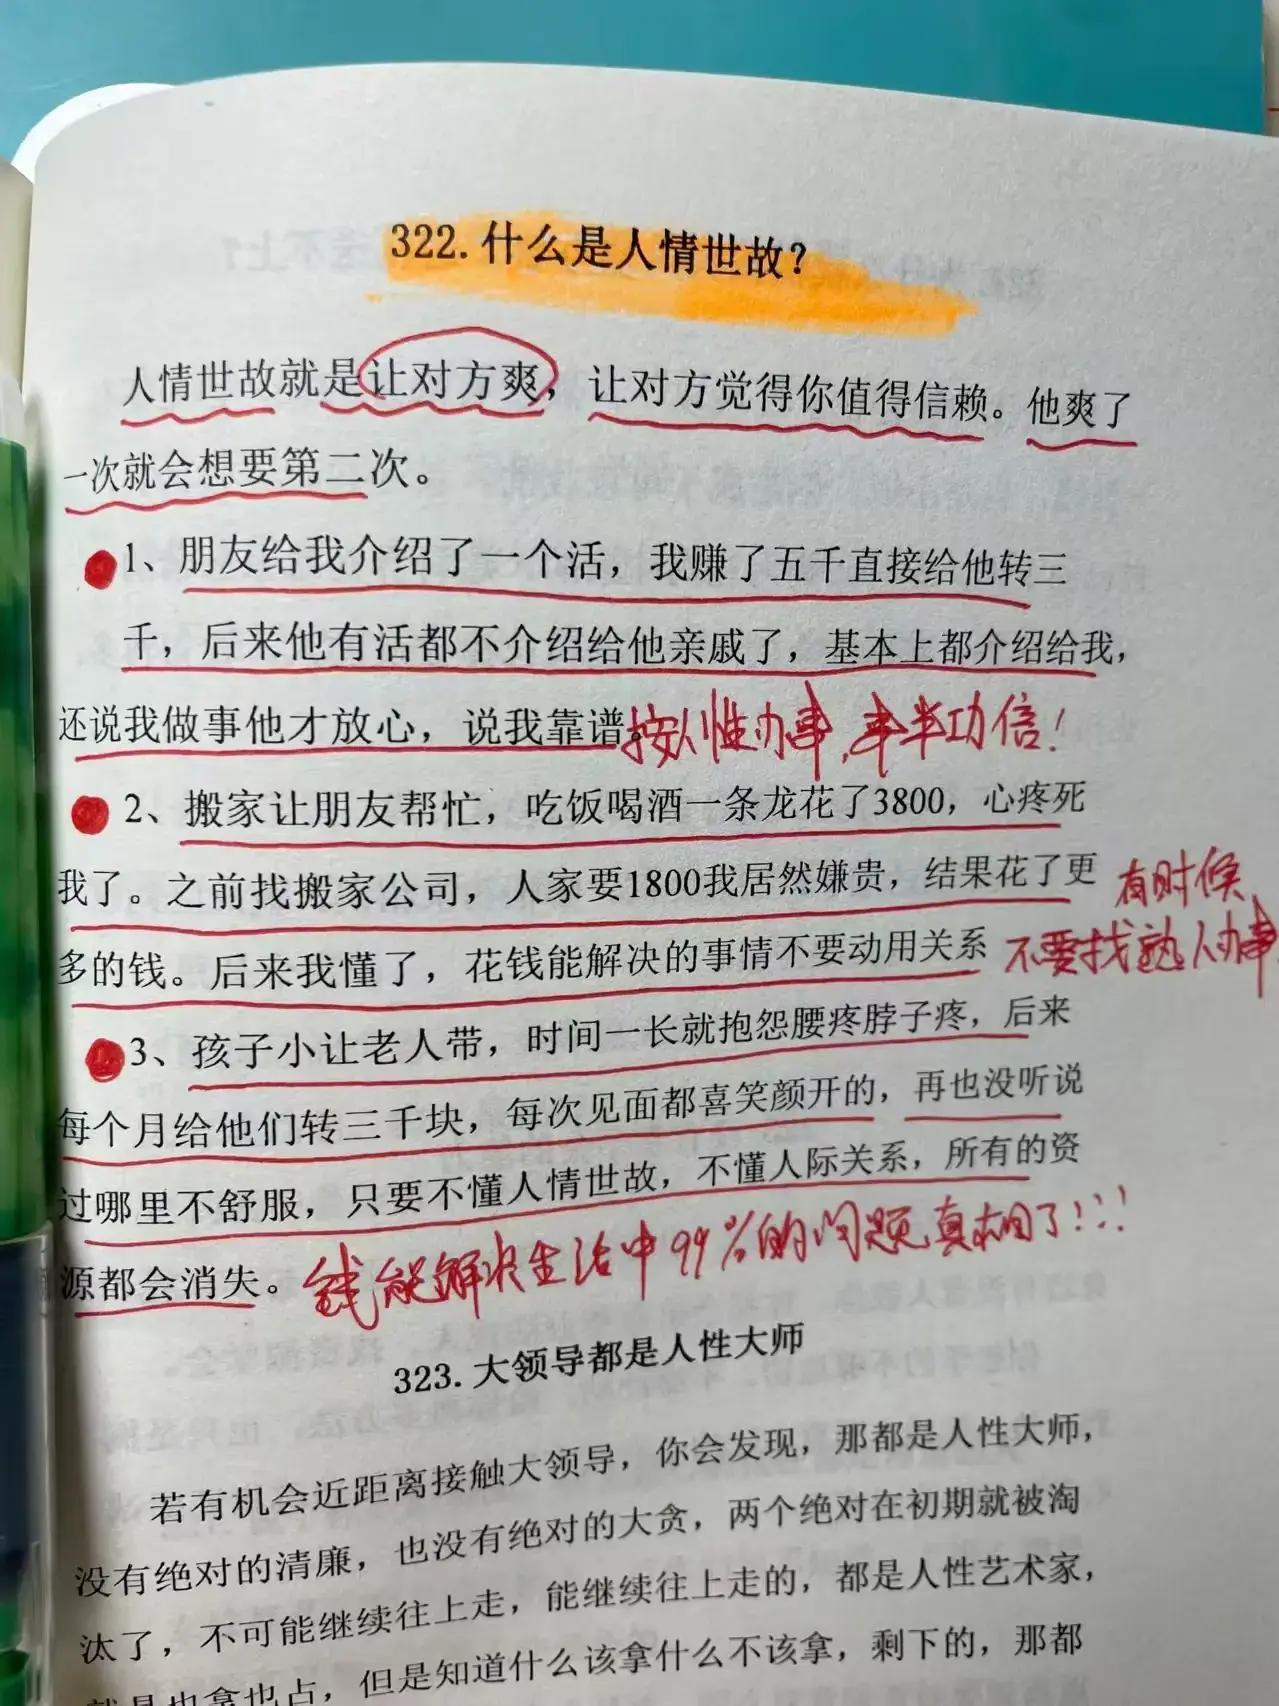 322.什么是人情世故？
人情世故就是让对方爽，让对方觉得你值得信赖。他爽了
一次就会想要第二次。
1、朋友给我介绍了一个活，我赚了五千直接给他转三
千，后来他有活都不介绍给他亲戚了，基本上都介绍给我，
还说我做事他才放心，说我靠谱。按人性办事，事半功倍！
2、搬家让朋友帮忙，吃饭喝酒一条龙花了3800，心疼死
我了。之前找搬家公司，人家要1800我居然嫌贵，结果花了更
多的钱。后来我懂了，花钱能解决的事情不要动用关系
有时候
不要找熟人办事
3、孩子小让老人带，时间一长就抱怨腰疼脖子疼，后来
每个月给他们转三千块，每次见面都喜笑颜开的，再也没听说
过哪里不舒服，只要不懂人情世故，不懂人际关系，所有的资
源都会消失。钱能解决生活中99%的问题真相了！！！
323.大领导都是人性大师
若有机会近距离接触大领导，你会发现，那都是人性大师，
没有绝对的清廉，也没有绝对的大贪，两个绝对在初期就被淘
汰了，不可能继续往上走，能继续往上走的，都是人性艺术家，
就是也拿也占，但是知道什么该拿什么不该拿，剩下的，那都